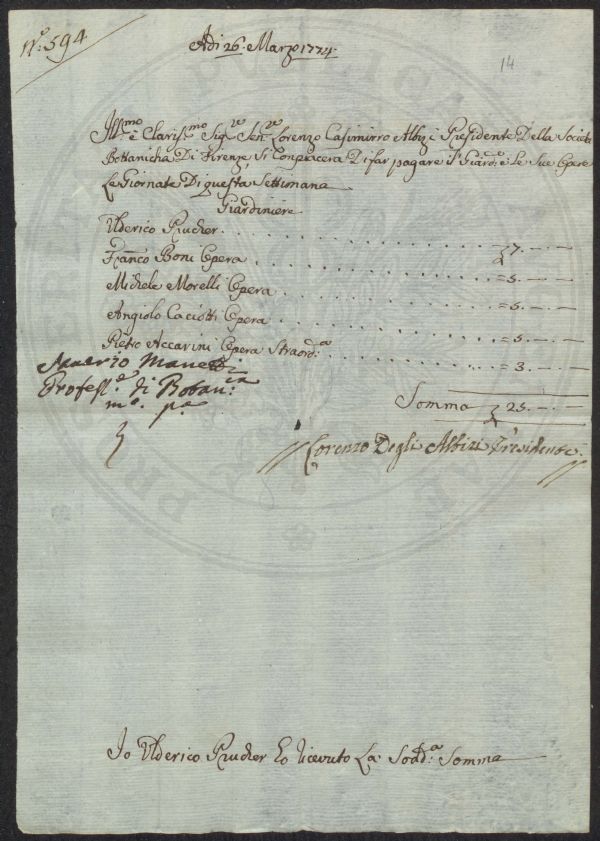 N.º 594
Adi 26. Marzo 1774.
14
Ill.mo e Claris.mo Sig.re Sen.re Lorenzo Casimirro Albizi Presidente Della Società
Bottanicha Di Firenze, Si Conpiacera Di far pagare il Giard.e e Le Sue Opere
Le Giornate Di questa Settimana
Giardiniere
Ulderico Prucher . . . . . . . . . . . . £ 7. — —
Fran.co Boni Opera . . . . . . . . . . . = 5. — —
Michele Morelli Opera . . . . . . . . . = 5. — —
Angiolo Caciotti Opera . . . . . . . . . = 5. — —
Pietro Accarini Opera Straord.a . . . . = 3. — —
Saverio Manetti
Profess.e di Botan.ca
m.o p.a
Somma £ 25. — —
Lorenzo Degli Albizi Presidente.
Io Ulderico Prucher Ho ricevuto La Sodd.a Somma